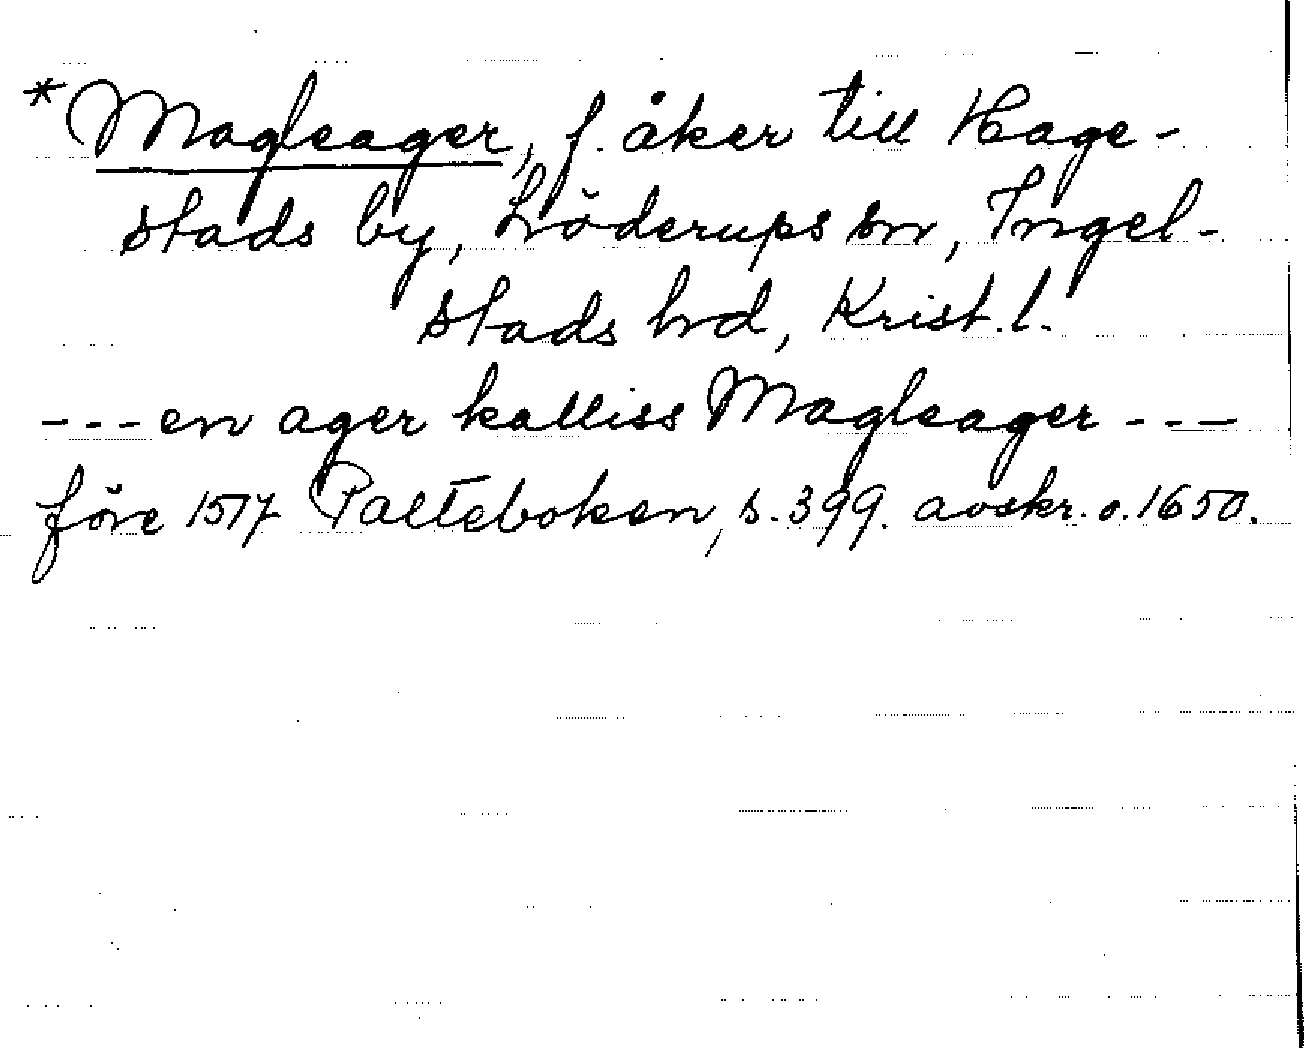 *Magleager, f. åker till Hage-
stads by, Löderups sn, Ingel-
stads hrd, Krist. l.
---en ager kalliss Magleager---
före 1517 Palteboken, s. 399. avskr. o. 1650.